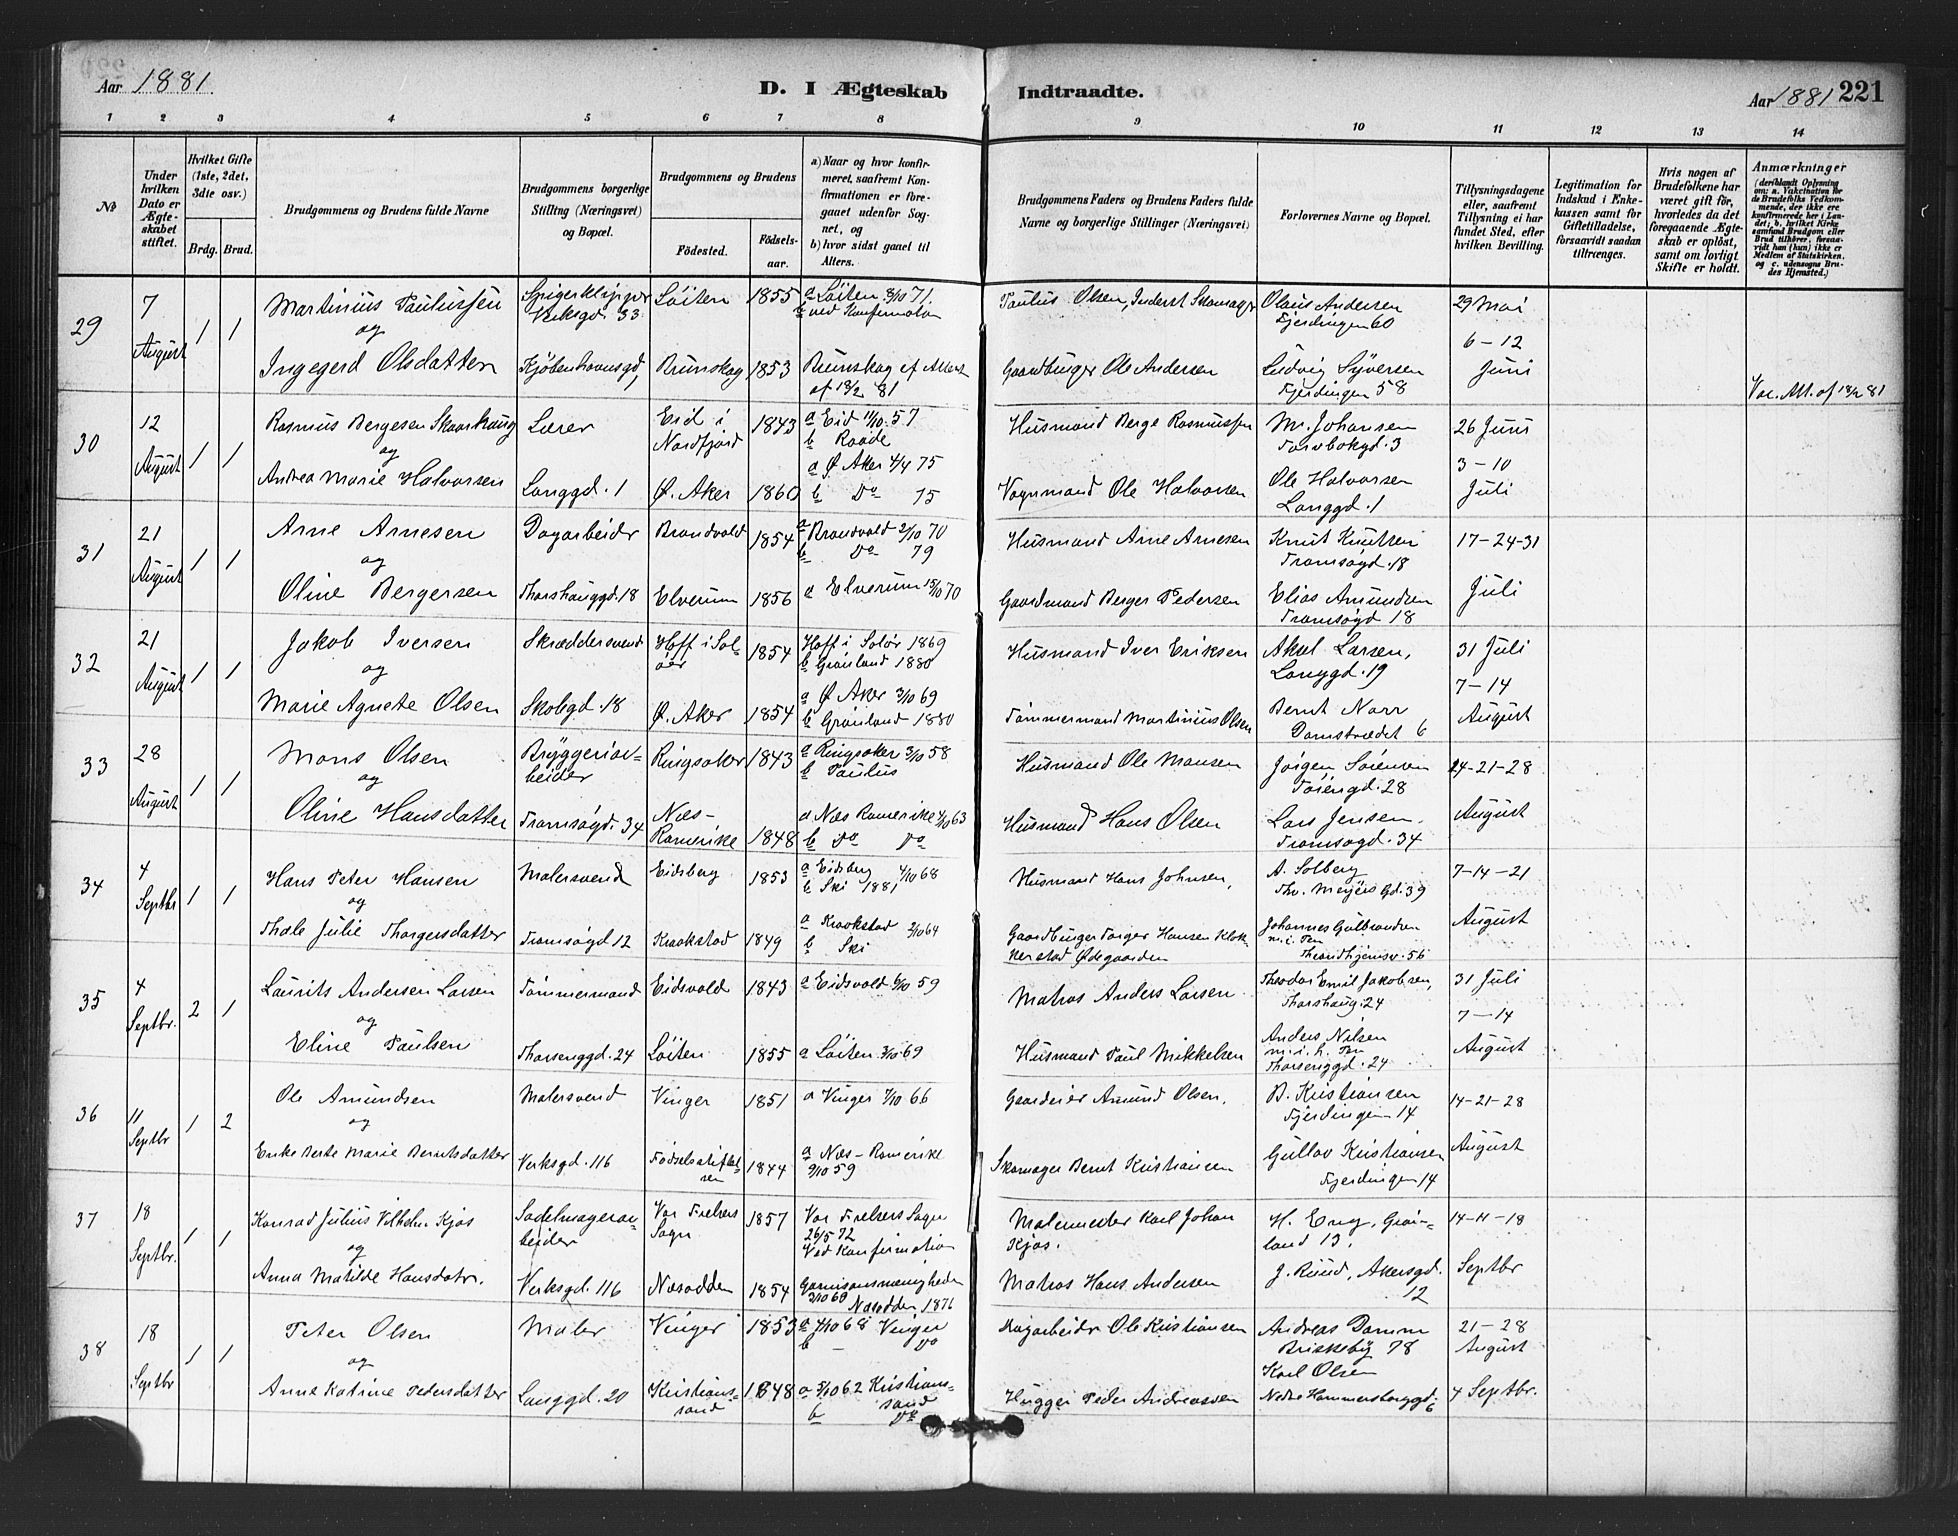 Aar 1881.
D. I Ægteskab Indtraadte.
Aar 1881 221
1 2 3 4 5 6 7 8 9 10 11 12 13 14
No
Under hvilken Dato er Ægteskabet stiftet.
Hvilket Gifte (1ste, 2det, 3dte osv.)
Brdg. Brud.
Brudgommens og Brudens fulde Navne
Brudgommens borgerlige Stilling (Næringsvei) og Bopæl.
Brudgommens og Brudens
Fødested. Fødselsaar.
a) Naar og hvor konfirmeret, saafremt Konfirmationen er foregaaet udenfor Sognet, og
b) hvor sidst gaaet til Alters.
Brudgommens Faders og Brudens Faders fulde Navne og borgerlige Stillinger (Næringsvei)
Forlovernes Navne og Bopæl.
Tillysningsdagene eller, saafremt Tillysning ei har fundet Sted, efter hvilken Bevilling.
Legitimation for Indskud i Enkekassen samt for Giftetilladelse, forsaavidt saadan tiltrænges.
Hvis nogen af Brudefolkene har været gift før, hvorledes da det foregaaende Ægteskab er opløst, samt om lovligt Skifte er holdt.
Anmærkninger
(deriblandt Oplysning om: a. Vakcination for de Brudefolks Vedkommende, der ikke ere konfirmerede her i Landet; b. hvilket Kirkesamfund Brudgom eller Brud tilhører, forsaavidt han (hun) ikke er Medlem af Statskirken, og c. udensogns Brudes Hjemsted.)
29 7 August 1 1
Martinius Paulussen Spigerklipper Verksgd. 33 Løiten 1855 a Løiten 8/10 71. b ved Konfirmation Paulus Olsen, Inderst Skomager Olaus Andersen Fjerdingen 60 29 Mai
og 6-12
Ingegerd Olsdatter Kjøbenhavnsgd, Brunskog 1853 Brunskog ef Attest af 18/2 81 Gaardbruger Ole Andersen Ludvig Syversen Fjerdingen 58 Juni Vac. Att. af 18/2 81
30 12 August 1 1
Rasmus Bergesen Skaarhaug Lærer Eid i Nordfjord 1843 a Eid 11/10 57 b Raade Husmand Berge Rasmussen M. Johansen Torvbakgd. 3 26 Juni
og 3-10
Andrea Marie Halvorsen Langgd. 1 Ø. Aker 1860 a Ø Aker 4/4 75 b Do 75 Vognmand Ole Halvorsen Ole Halvorsen Langgd. 1 Juli
31 21 August 1 1
Arne Arnesen Dagarbeider Brandvold 1854 a Brandvold 2/10 70 b Do 79 Husmand Arne Arnesen Knut Knutsen Tromsøgd. 18 17-24-31
og
Oline Bergersen Thorshauggd. 18 Elverum 1856 a Elverum 15/10 70 Gaardmand Berger Pedersen Elias Amundsen Tromsøgd 18 Juli
32 21 August 1 1
Jakob Iversen Skræddersvend Hoff i Soløer 1854 Hoff i Solør 1869 b Grønland 1880 Husmand Iver Eriksen Aksel Larsen, Langgd. 19 31 Juli
og 7-14
Marie Agnete Olsen Skolegd. 18 Ø. Aker 1854 a Ø Aker 3/10 69 b Grønland 1880 Tømmermand Martinius Olsen Bernt Narr Damstrædet 6 August
33 28 August 1 1
Mons Olsen Bryggeriarbeider Ringsaker 1843 a Ringsaker 3/10 58 b Paulus Husmand Ole Monsen Jørgen Sørensen Tøiengd. 28 14-21-28
og
Oline Hansdatter Tromsøgd. 34 Næs-Romerike 1848 a Næs Romerike 4/10 63 b Do Do Husmand Hans Olsen Lars Jensen. Tromsøgd. 34 August
34 4 Septbr 1 1
Hans Peter Hansen Malersvend Eidsberg 1853 a Eidsberg 4/10 68 b Ski 1881 Husmand Hans Johnsen, A. Solberg Thv. Meyers Gd. 39 7-14-21
og
Thale Julie Thorgersdatter Tromsøgd 12 Kraakstad 1849 a Kraakstad 2/10 64 b Ski Gaardbruger Torger Hansen Klokkerstad Ødegaarden Johannes Gulbrandsen Throndhjemsv. 56 August
35 4 Septbr. 2 1
Laurits Andersen Larsen Tømmermand Eidsvold 1843 a Eidsvold 6/10 59 Matros Anders Larsen Theodor Emil Jakobsen, Thorshaug. 24 31 Juli
og 7-14
Eline Paulsen Thorsenggd. 24 Løiten 1855 a Løiten 3/10 69 Husmand Paul Mikkelsen Anders Nilsen Thorsenggd. 24 August
36 11 Septbr 1 2
Ole Amundsen Malersvend Vinger 1851 a Vinger 7/10 66 Gaardeier Amund Olsen, B. Kristiansen Fjerdingen 14 14-21-28
og
Enke Berte Marie Berntsdatter Verksgd. 116 Fødselsstiftelsen 1844 a Næs-Romerike 9/10 59 Skomager Bernt Kristiansen Gullov Kristiansen Fjerdingen 14 August
37 18 Septbr. 1 1
Konrad Julius Vilhelm Kjøs Sadelmagerarbeider Vor Frelsers Sogn 1857 Vor Frelsers Sogn 26/5 72 Ved Konfirmation Malermester Karl Johan Kjøs. H. Eng, Grønland 13. 14-11-18
og
Anna Matilde Hansdatr. Verksgd. 116 Næsodden 1854 Garnisonsmenigheden 3/10 68 Næsodden 1876 Matros Hans Andersen J. Ruud, Akersgd. 12 Septbr
38 18 Septbr 1 1
Peter Olsen Maler Vinger 1853 a 4/10 68 Vinger b - Do Dagarbeider Ole Kristiansen Andreas Damm Briskeby 78 21-28 August
og
Anne Katrine Pedersdatter Langgd. 20 Kristianssand 1848 a 5/10 62 Kristianssand b Do Hugger Peder Andreassen Karl Olsen Nedre Hammersborggd. 6 4 Septbr.